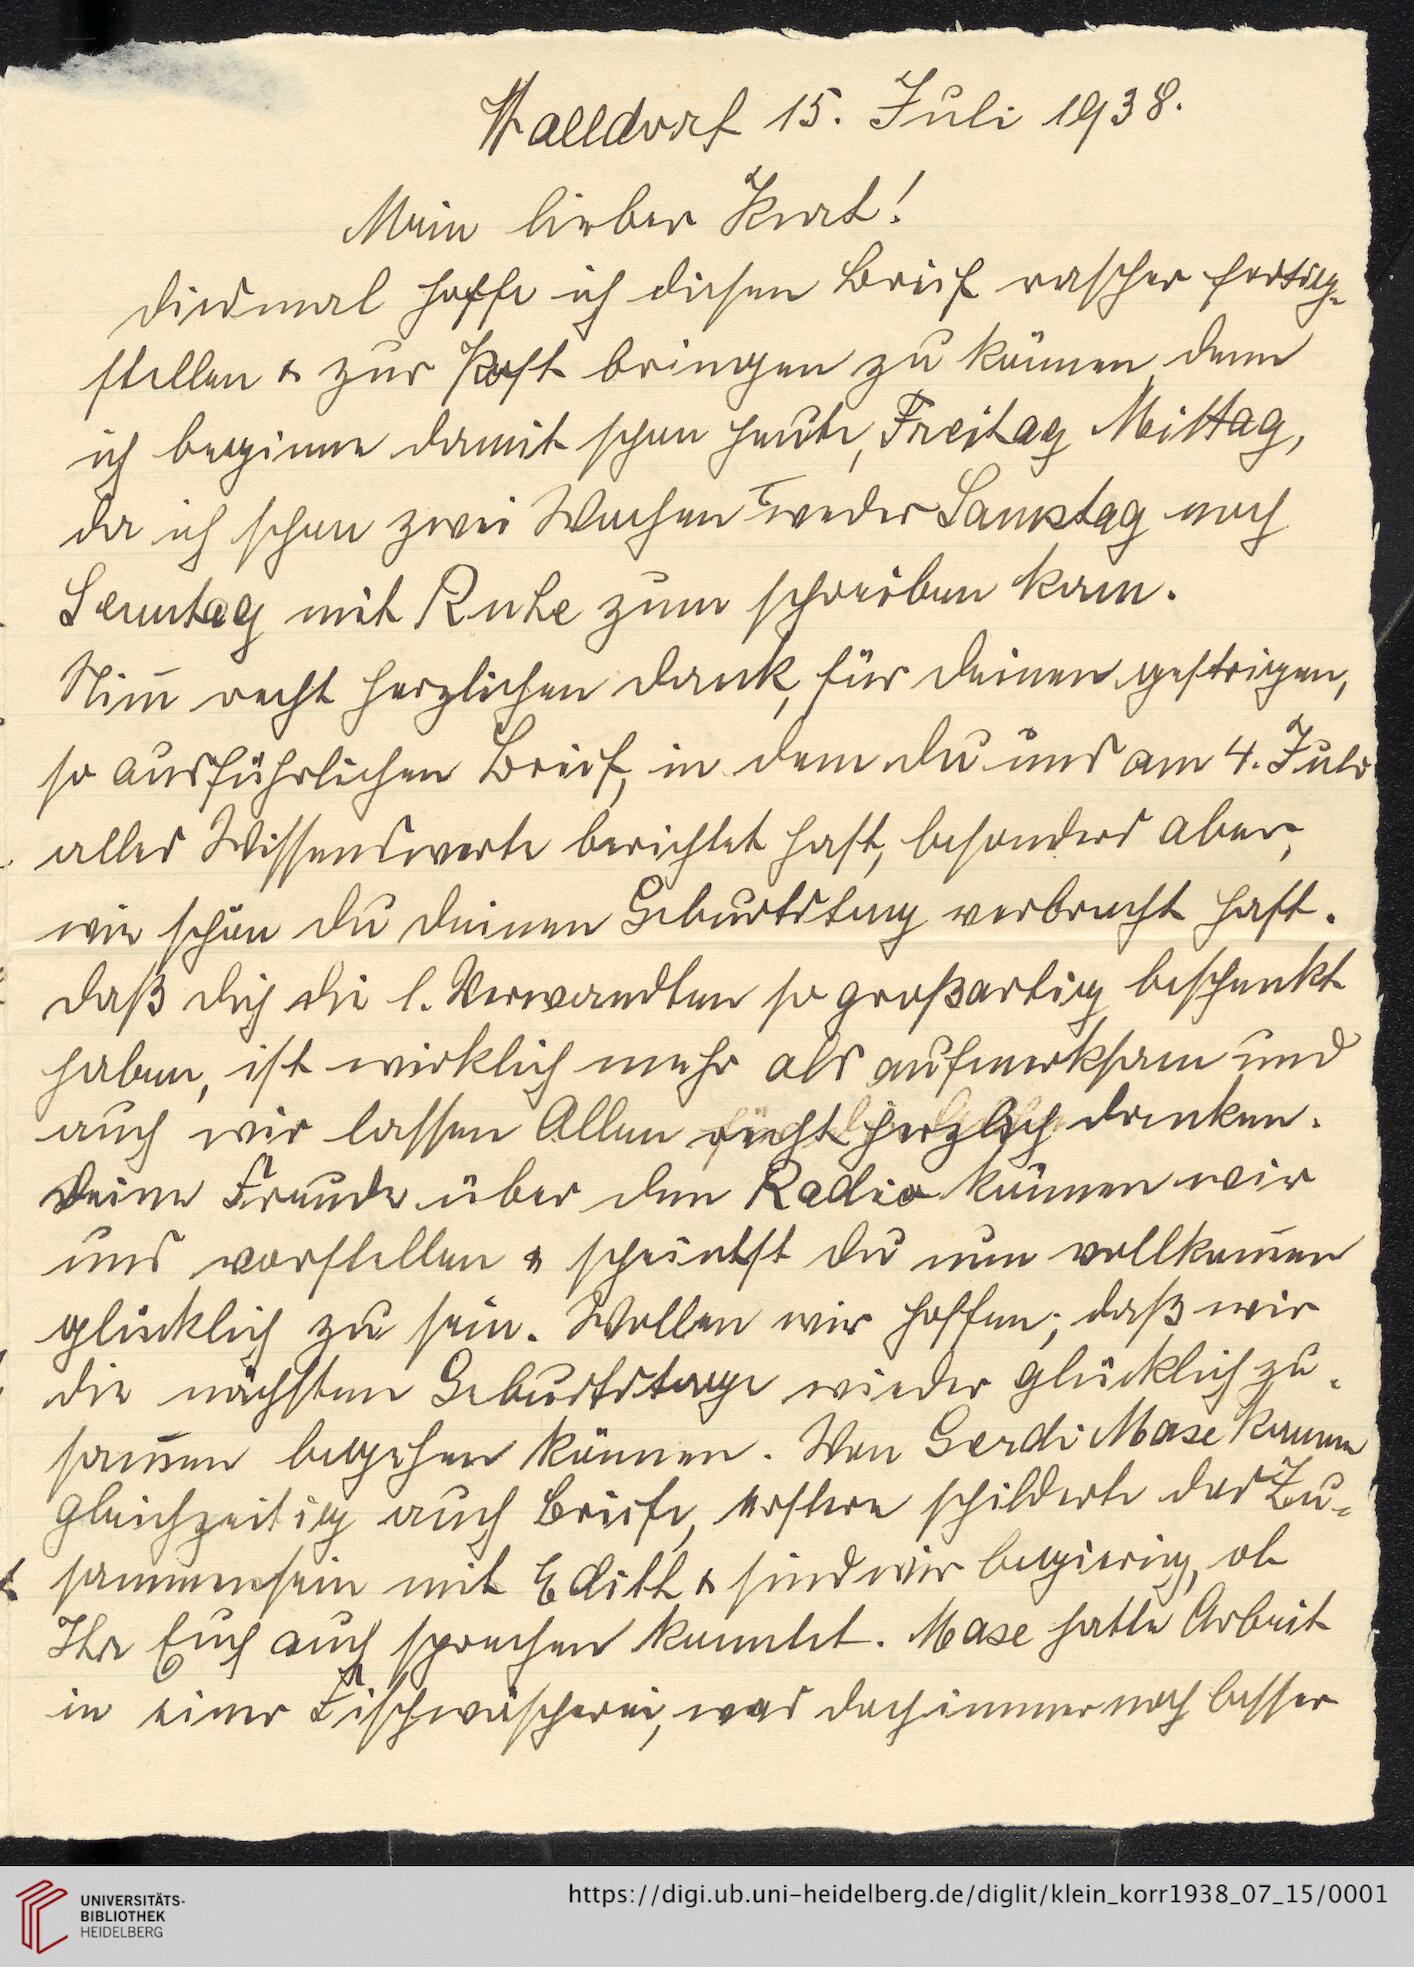 Walldorf 15. Juli 1938.
Mein lieber Kurt!
Diesmal hoffe ich diesen Brief rascher fertig-
stellen & zur Post bringen zu können denn
ich beginne damit schon heute, Freitag Mittag,
da ich schon zwei Wochen weder Samstag noch
Sonntag mit Ruhe zum schreiben kam.
Nim̅ recht herzlichen Dank, für Deinen gestrigen,
so ausführlichen Brief, in dem Du uns am 4. Juli
alles Wissenswerte berichtet hast, besonders aber,
wie schön Du Deinen Geburtstag verbracht hast.
Daß Dich die l. Verwandten so großartig beschenkt
haben, ist wirklich mehr als aufmerksam und
auch wir lassen Allen recht herzlich danken.
Deine Freude über den Radio können wir
uns vorstellen & scheintst Du nun vollkom̅en
glücklich zu sein. Wollen wir hoffen, daß wir
die nächsten Geburtstage wieder glücklich zu-
sam̅en begehen können. Von Gerdi Mase kamen
gleichzeitig auch Briefe, erstere schilderte das Zu-
sammensein mit Edith & sind wir begierig, ob
Ihr Euch auch sprechen konntet. Mase hatte Arbeit
in einer Fischwäscherei, was doch immer noch besser
UNIVERSITÄTS-
BIBLIOTHEK
HEIDELBERG
https://digi.ub.uni-heidelberg.de/diglit/klein_korr1938_07_15/0001